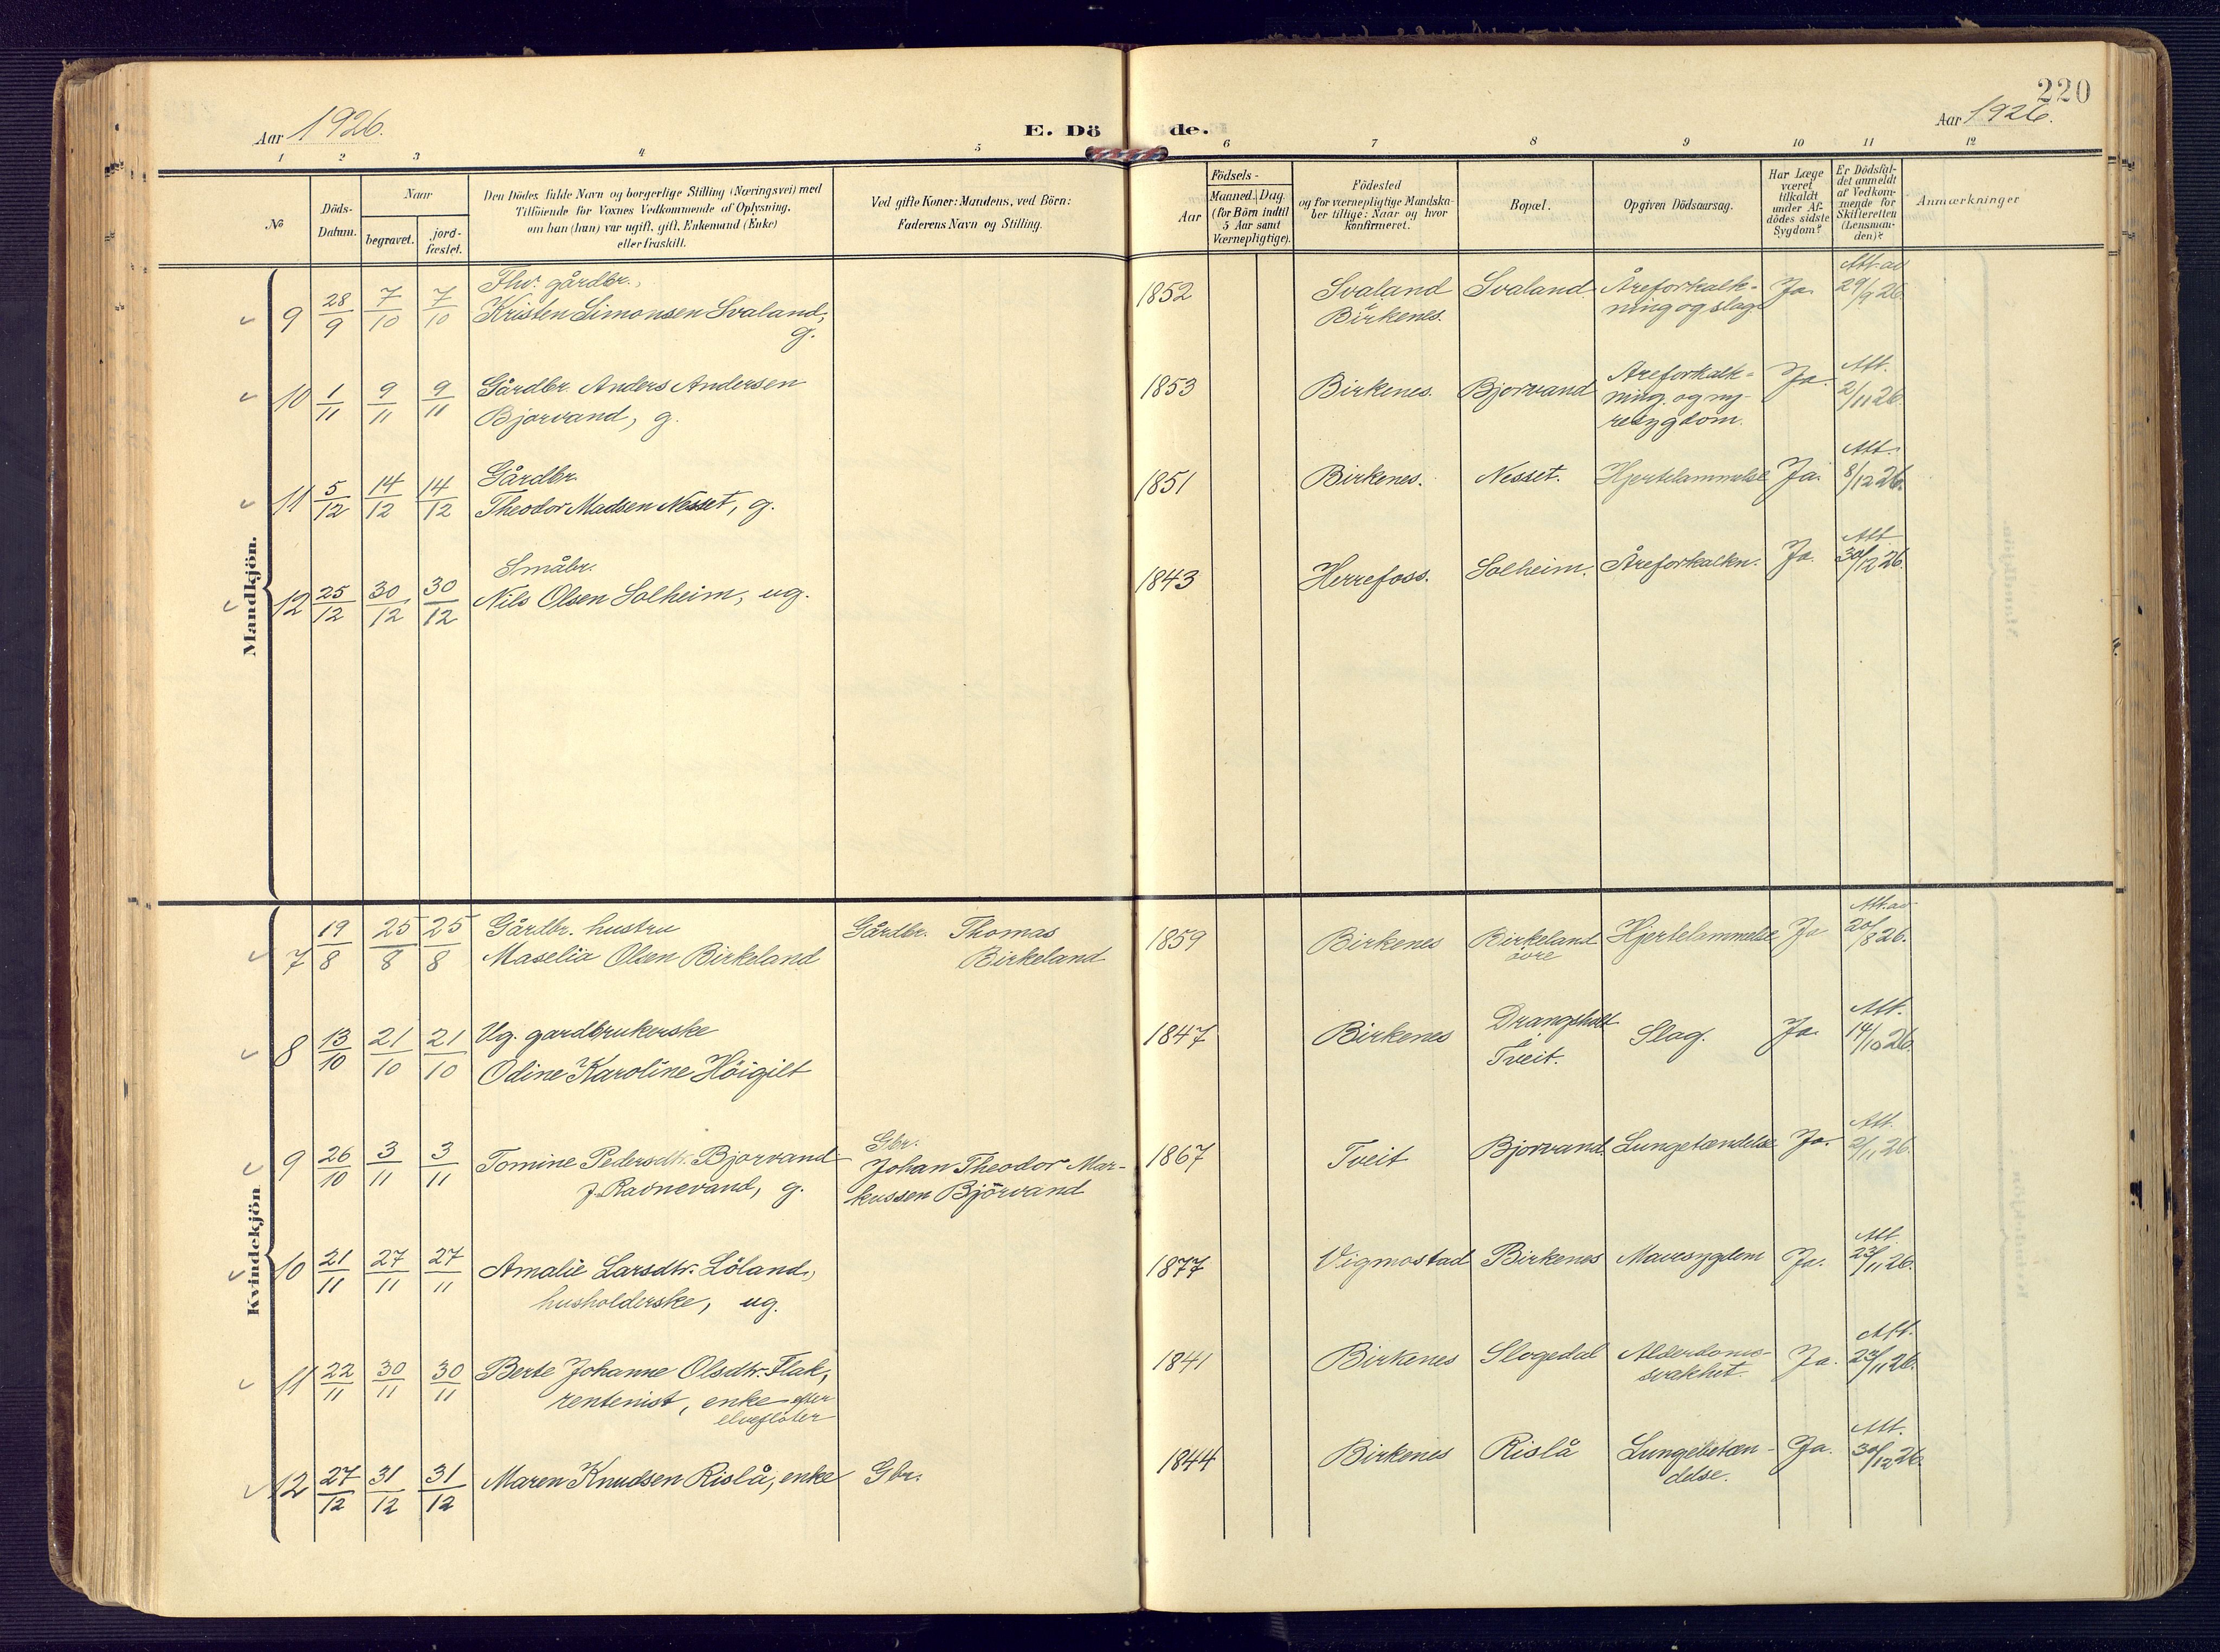 220
Aar 1926.
E. Döde.
Aar 1926.
1 2 3 4 5 6 7 8 9 10 11 12
№
Döds-Datum.
Naar
begravet.
jordfæstet.
Den Dödes fulde Navn og borgerlige Stilling (Næringsvei) med
Tilföiende for Voxnes Vedkommende af Oplysning,
om han (hun) var ugift, gift, Enkemand (Enke)
eller fraskilt.
Ved gifte Koner: Mandens, ved Börn:
Faderens Navn og Stilling.
Födsels-
Aar
Maaned. Dag.
(for Börn indtil
5 Aar samt
Værnepligtige).
Födested
og for værnepligtige Mandska-
ber tillige: Naar og hvor
konfirmeret.
Bopæl.
Opgiven Dödsaarsag.
Har Læge
været
tilkaldt
under Af-
dödes sidste
Sygdom?
Er Dödsfal-
det anmeldt
af Vedkom-
mende for
Skifteretten
(Lensman-
den)?
Anmærkninger
Mandkjön.
9 28/9 7/10 7/10 Fhv. gårdbr.,
Kristen Simonsen Svaland,
g.
1852 Svaland
Birkenes. Svaland. Åreforkalk-
ning og slag. Ja. Att. av
29/9 26.
10 1/11 9/11 9/11 Gårdbr. Anders Andersen
Bjorvand, g.
1853 Birkenes. Bjorvand Åreforkalk-
ning og ny-
resygdom. Ja. Att.
2/11 26.
11 5/12 14/12 14/12 Gårdbr.
Theodor Madsen Nesset, g.
1851 Birkenes. Nesset. Hjertelammelse Ja. Att.
8/12 26.
12 25/12 30/12 30/12 Småbr.
Nils Olsen Solheim, ug.
1843 Herrefoss. Solheim. Åreforkalkn. Ja. Att
30/12 26.
Kvindekjön
7 19/8 25/8 25/8 Gårdbr. hustru
Maselia Olsen Birkeland
Gårdbr. Thomas
Birkeland
1859 Birkenes Birkeland
övre Hjertelammelse Ja Att. av
20/8 26.
8 13/10 21/10 21/10 Ug. gardbrukerske
Odine Karoline Höigilt
1847 Birkenes Drangsholt
i
Tveit. Slag. Ja. Att.
14/10 26.
9 26/10 3/11 3/11 Tomine Pedersdtr. Bjorvand
f. Ravnevand, g.
Gbr.
Johan Theodor Mar-
kussen Björvand
1867 Tveit Bjorvand Lungetændelse Ja. Att.
2/11 26.
10 21/11 27/11 27/11 Amalie Larsdtr. Löland,
husholderske, ug.
1877 Vigmostad Birkenes Mavesygdom Ja. Att
23/11 26.
11 22/11 30/11 30/11 Berte Johanne Olsdtr. Flak,
rentenist, enke efter
elvefløter
1841 Birkenes Slogedal Alderdoms-
svakhet. Ja. Att.
23/11 26.
12 27/12 31/12 31/12 Maren Knudsen Rislå, enke Gbr.
1844 Birkenes Rislå Lungebetæn-
delse. Ja. Att.
30/12 26.